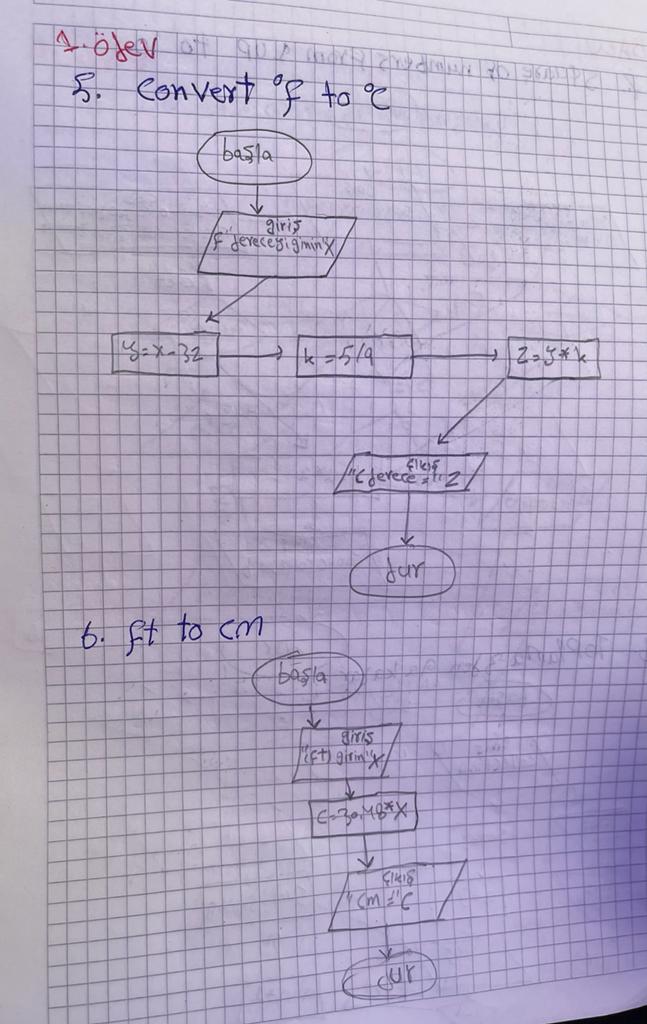 1. ödev
5. Convert °f to °C
başla
giriş
f "dereceyi girin" X
y = x - 32
k = 5/9
Z = y * k
Çıkış
"C derece = " Z
dur
6. ft to cm
başla
giriş
"(ft) girin" X
C = 30.48 * X
Çıkış
"Cm = " C
dur